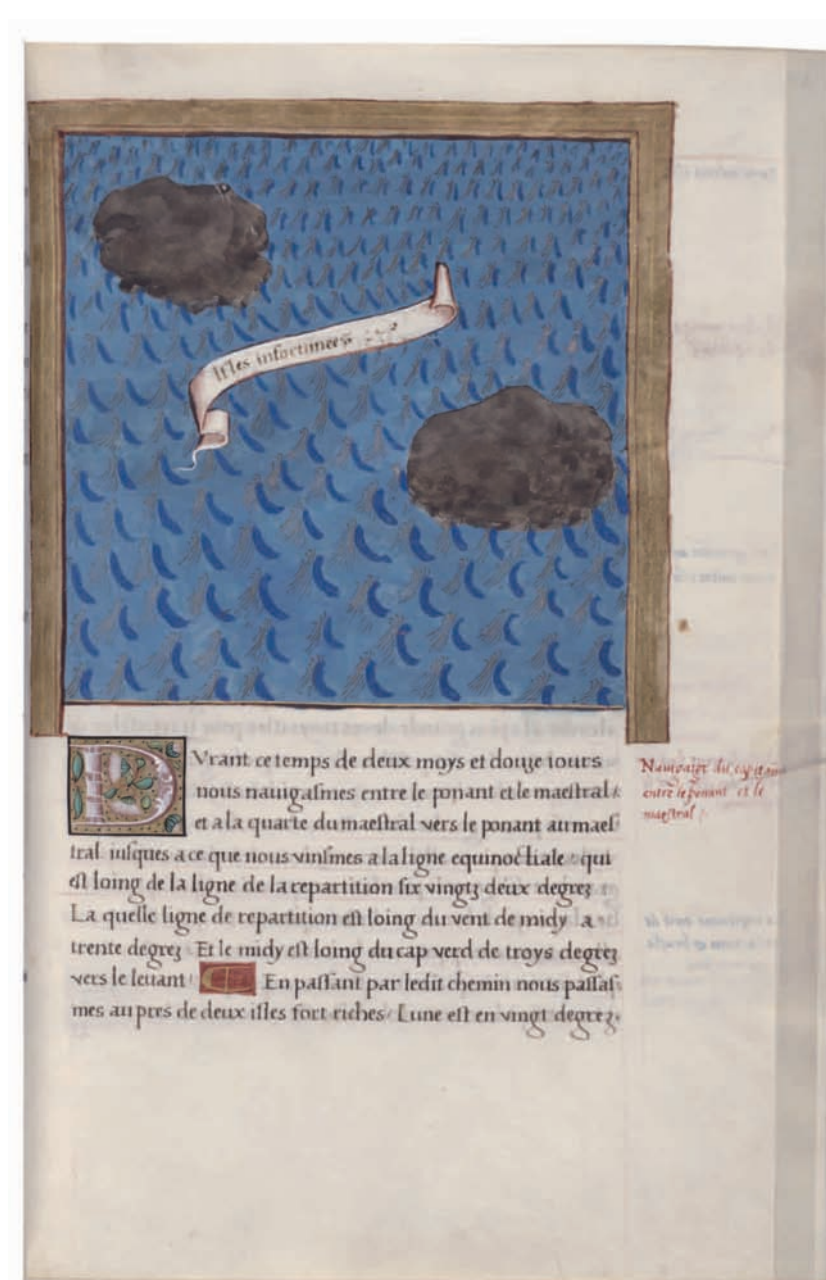 Isles infortunees
DVrant ce temps de deux moys et douze iours
nous nauigasmes entre le ponant et le maestral :
et a la quarte du maestral vers le ponant au maes
tral iusques a ce que nous vinsmes a la ligne equinoctiale : qui
est loing de la ligne de la repartition six vingtz deux degrez
La quelle ligne de repartition est loing du vent de midy a
trente degrez Et le midy est loing du cap verd de troys degrez
vers le leuant : En passant par ledit chemin nous passas
mes au pres de deux isles fort riches / Lune est en vingt degrez
Nauigaige du capitaine
entre le ponant et le
maestral